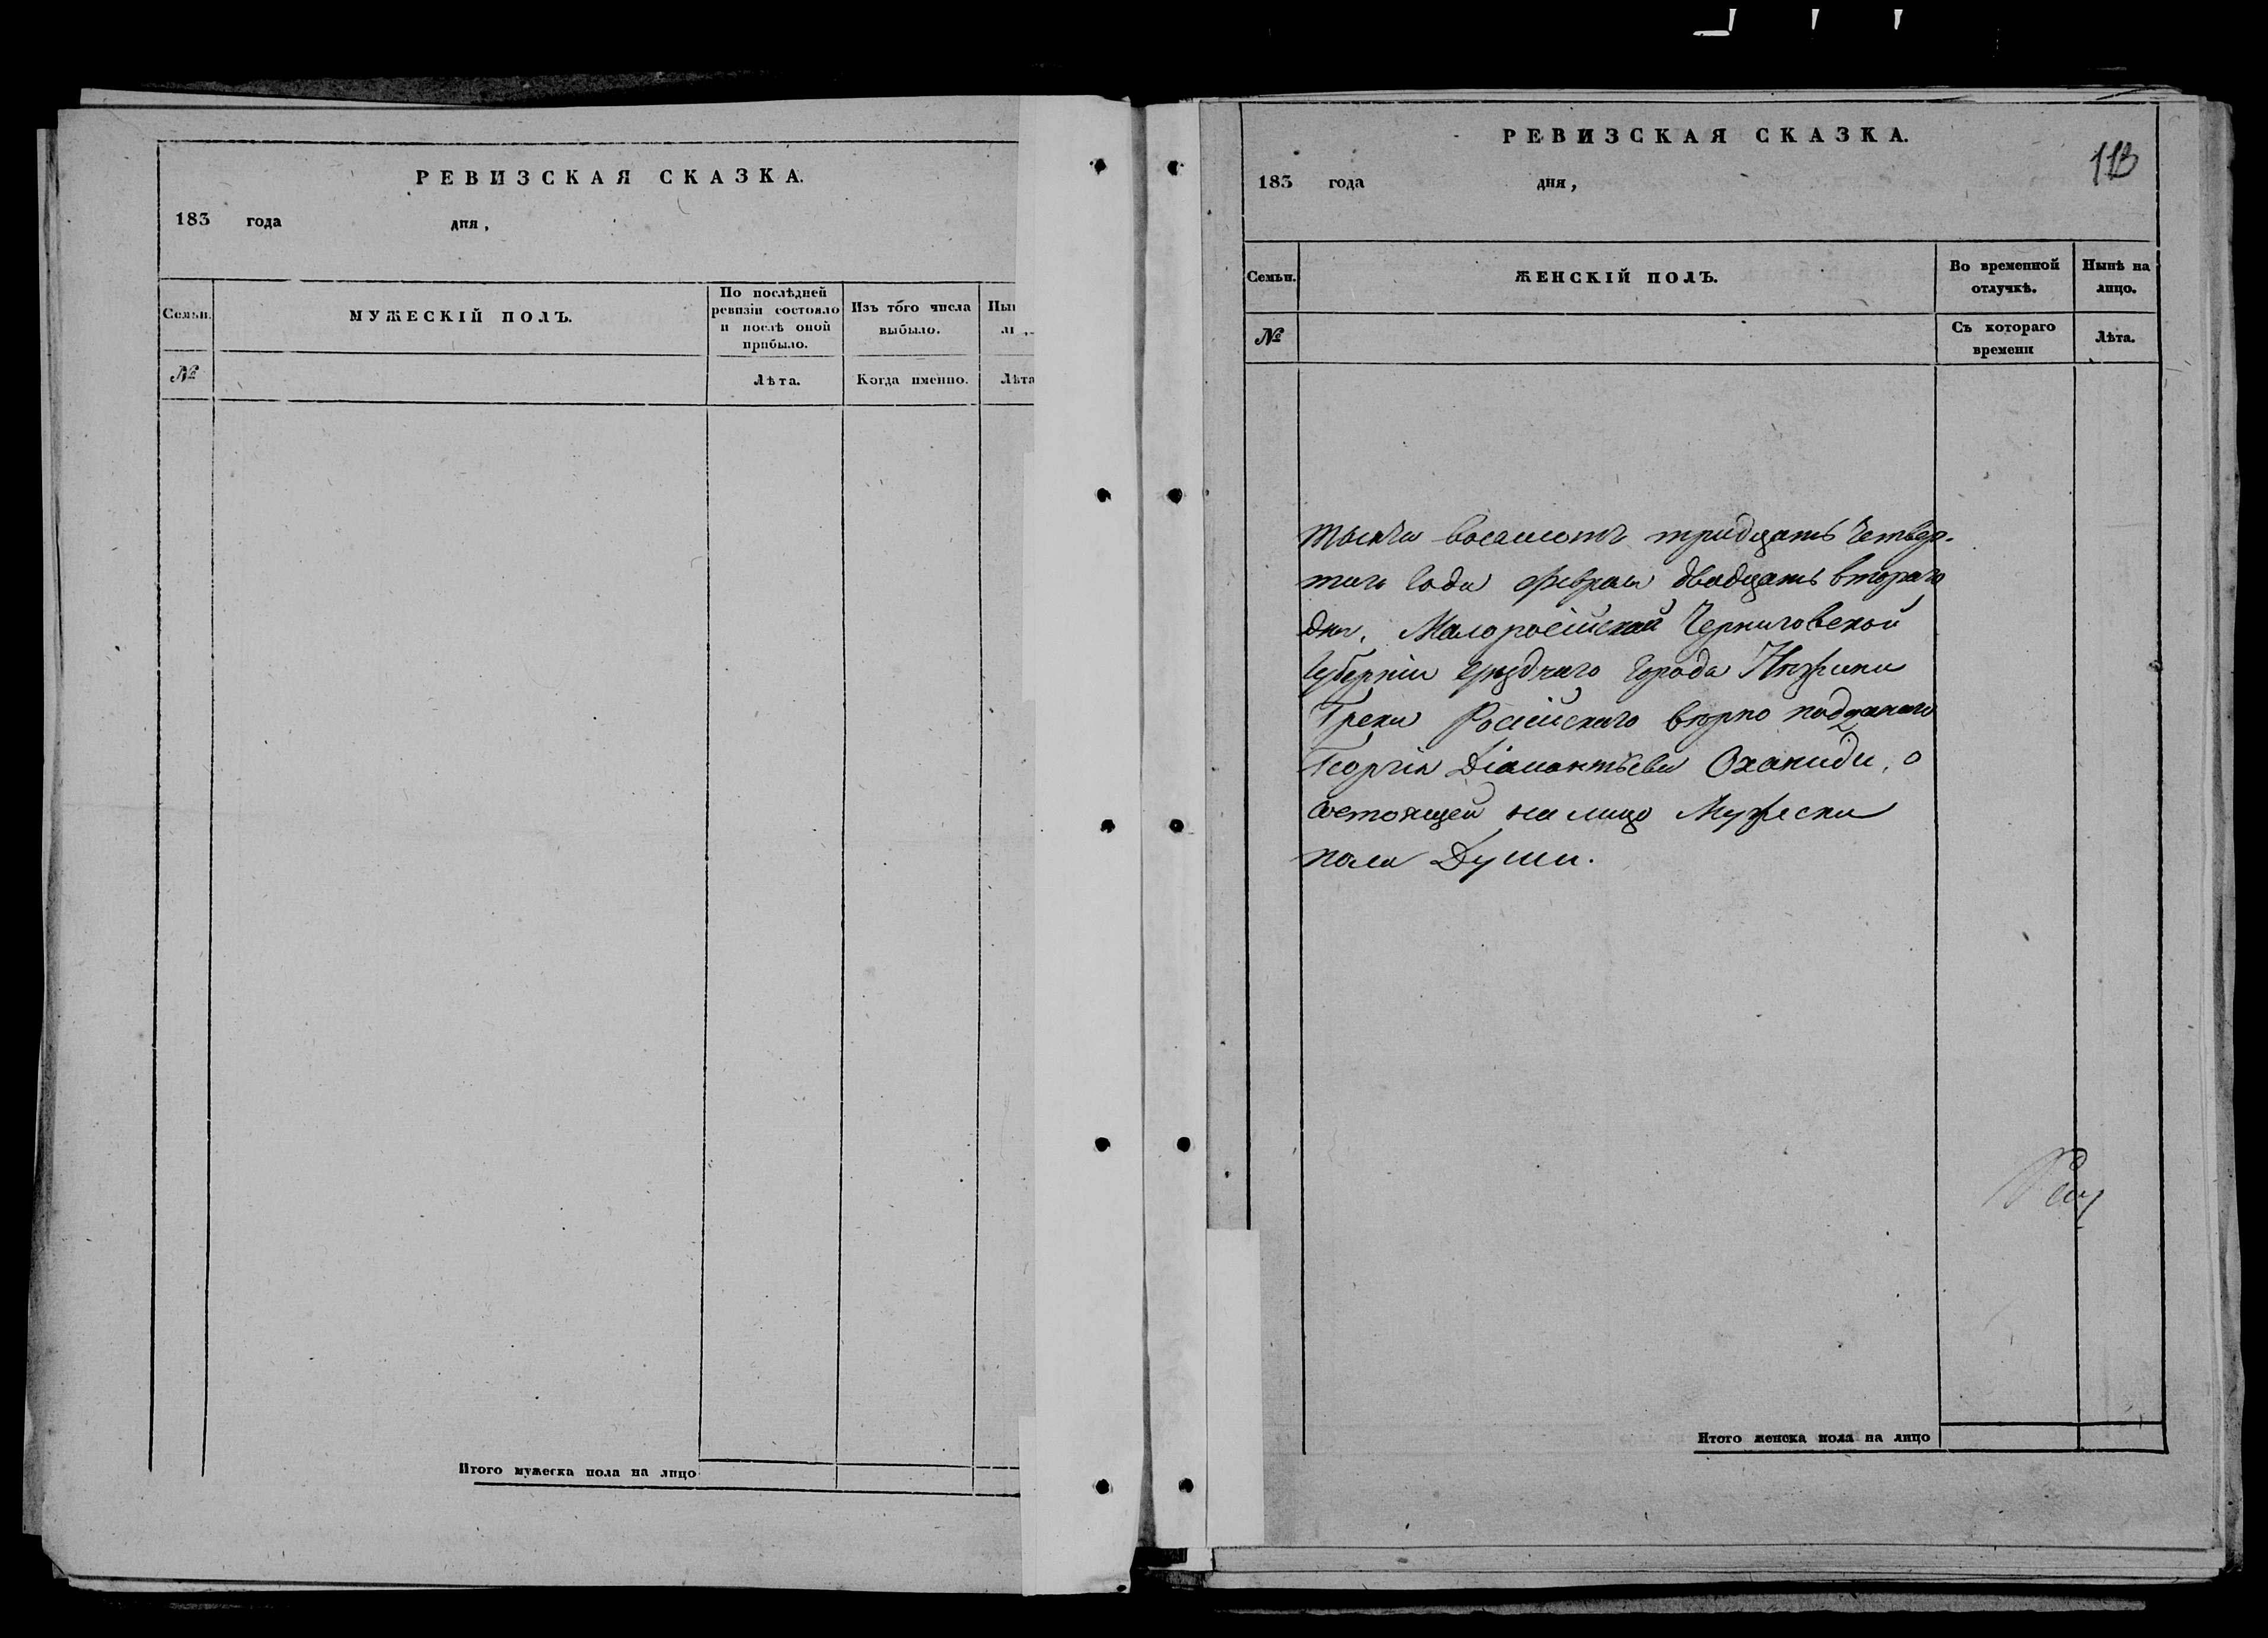 РЕВИЗСКАЯ СКАЗКА.
183 года дня,
Семьи.
МУЖЕСКІЙ ПОЛЪ.
По послѣдней
ревизіи состояло
и послѣ оной
прибыло.
Изъ того числа
выбыло.
Ны
ли
№
Лѣта.
Когда именно.
Лѣта
Итого мужеска пола на лицо
РЕВИЗСКАЯ СКАЗКА.
113
183 года дня,
Семьи.
ЖЕНСКІЙ ПОЛЪ.
Во временной
отлучкѣ.
Нынѣ на
лицо.
№
Съ котораго
времени
Лѣта.
тысяча восемсотъ тридцать четвер-
таго года февраля двадцать втораго
дня, Малороссійской Черниговской
губерніи уѣзднаго города Нѣжина
Грека Россійскаго вѣрно подданаго
Георгія Діамантіева
состоящей на лицо Мужеска
пола Души.
Итого женска пола на лицо